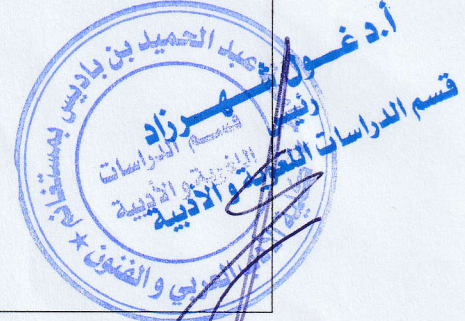 أ.د غول شهرزاد
رئيس
قسم الدراسات اللغوية و الأدبية
عبد الحميد بن باديس بمستغانم
قسم الدراسات
اللغوية و الأدبية
كلية الأدب العربي و الفنون